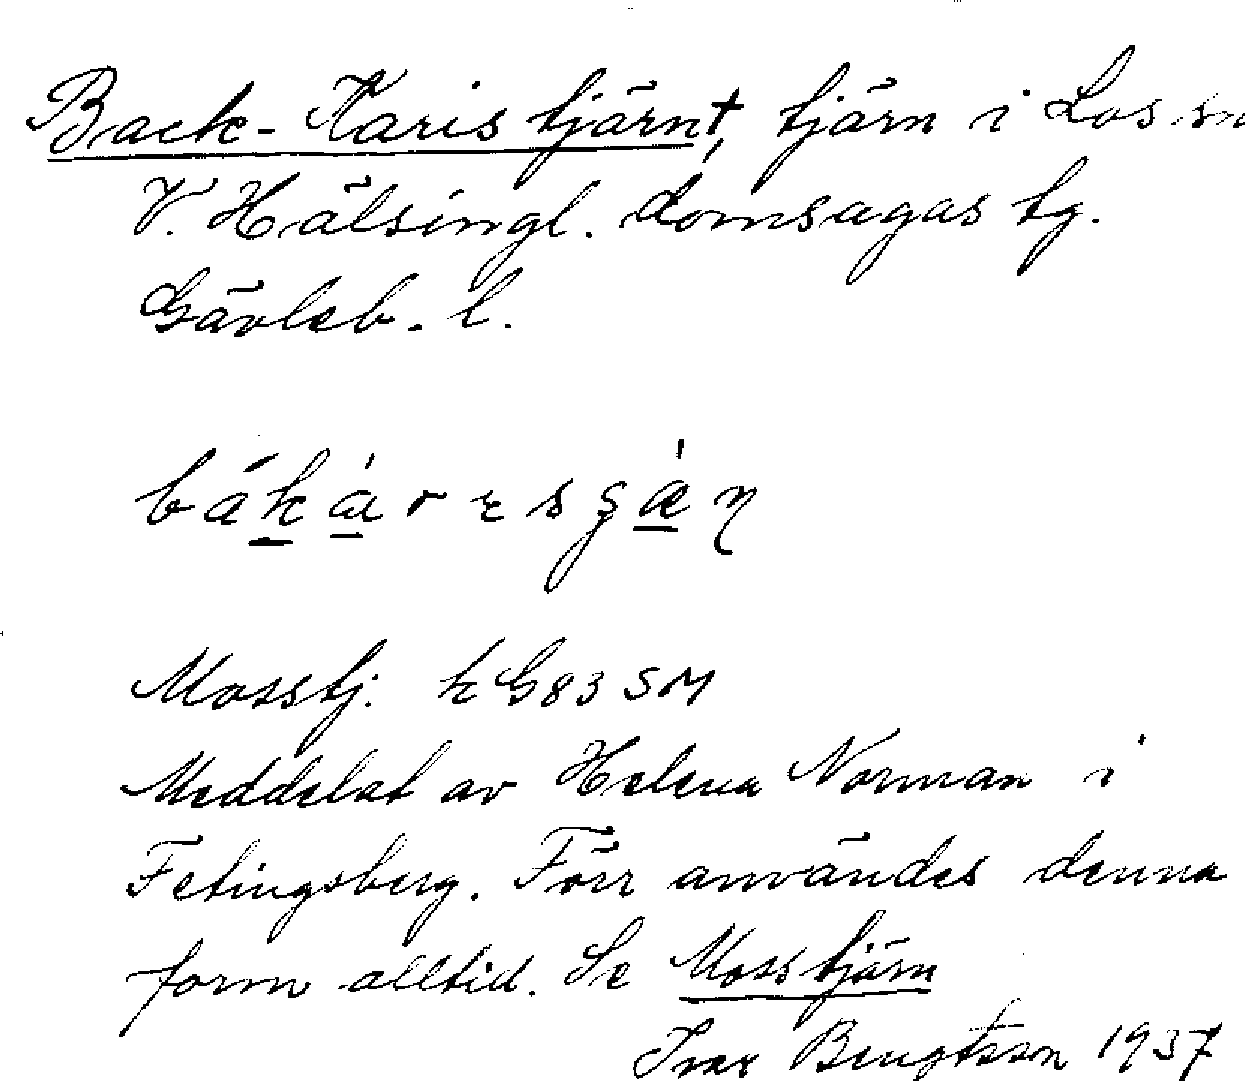 Back-Karis tjärnt, tjärn i Los sn
V. Hälsingl. domsagas tg.
Gävleb. l.
Masstj. k G83 SM
Meddelat av Helena Norman i
Fetingsberg. Förr användes denna
form alltid. Se Masstjärn
Ivar Bengtsson 1937